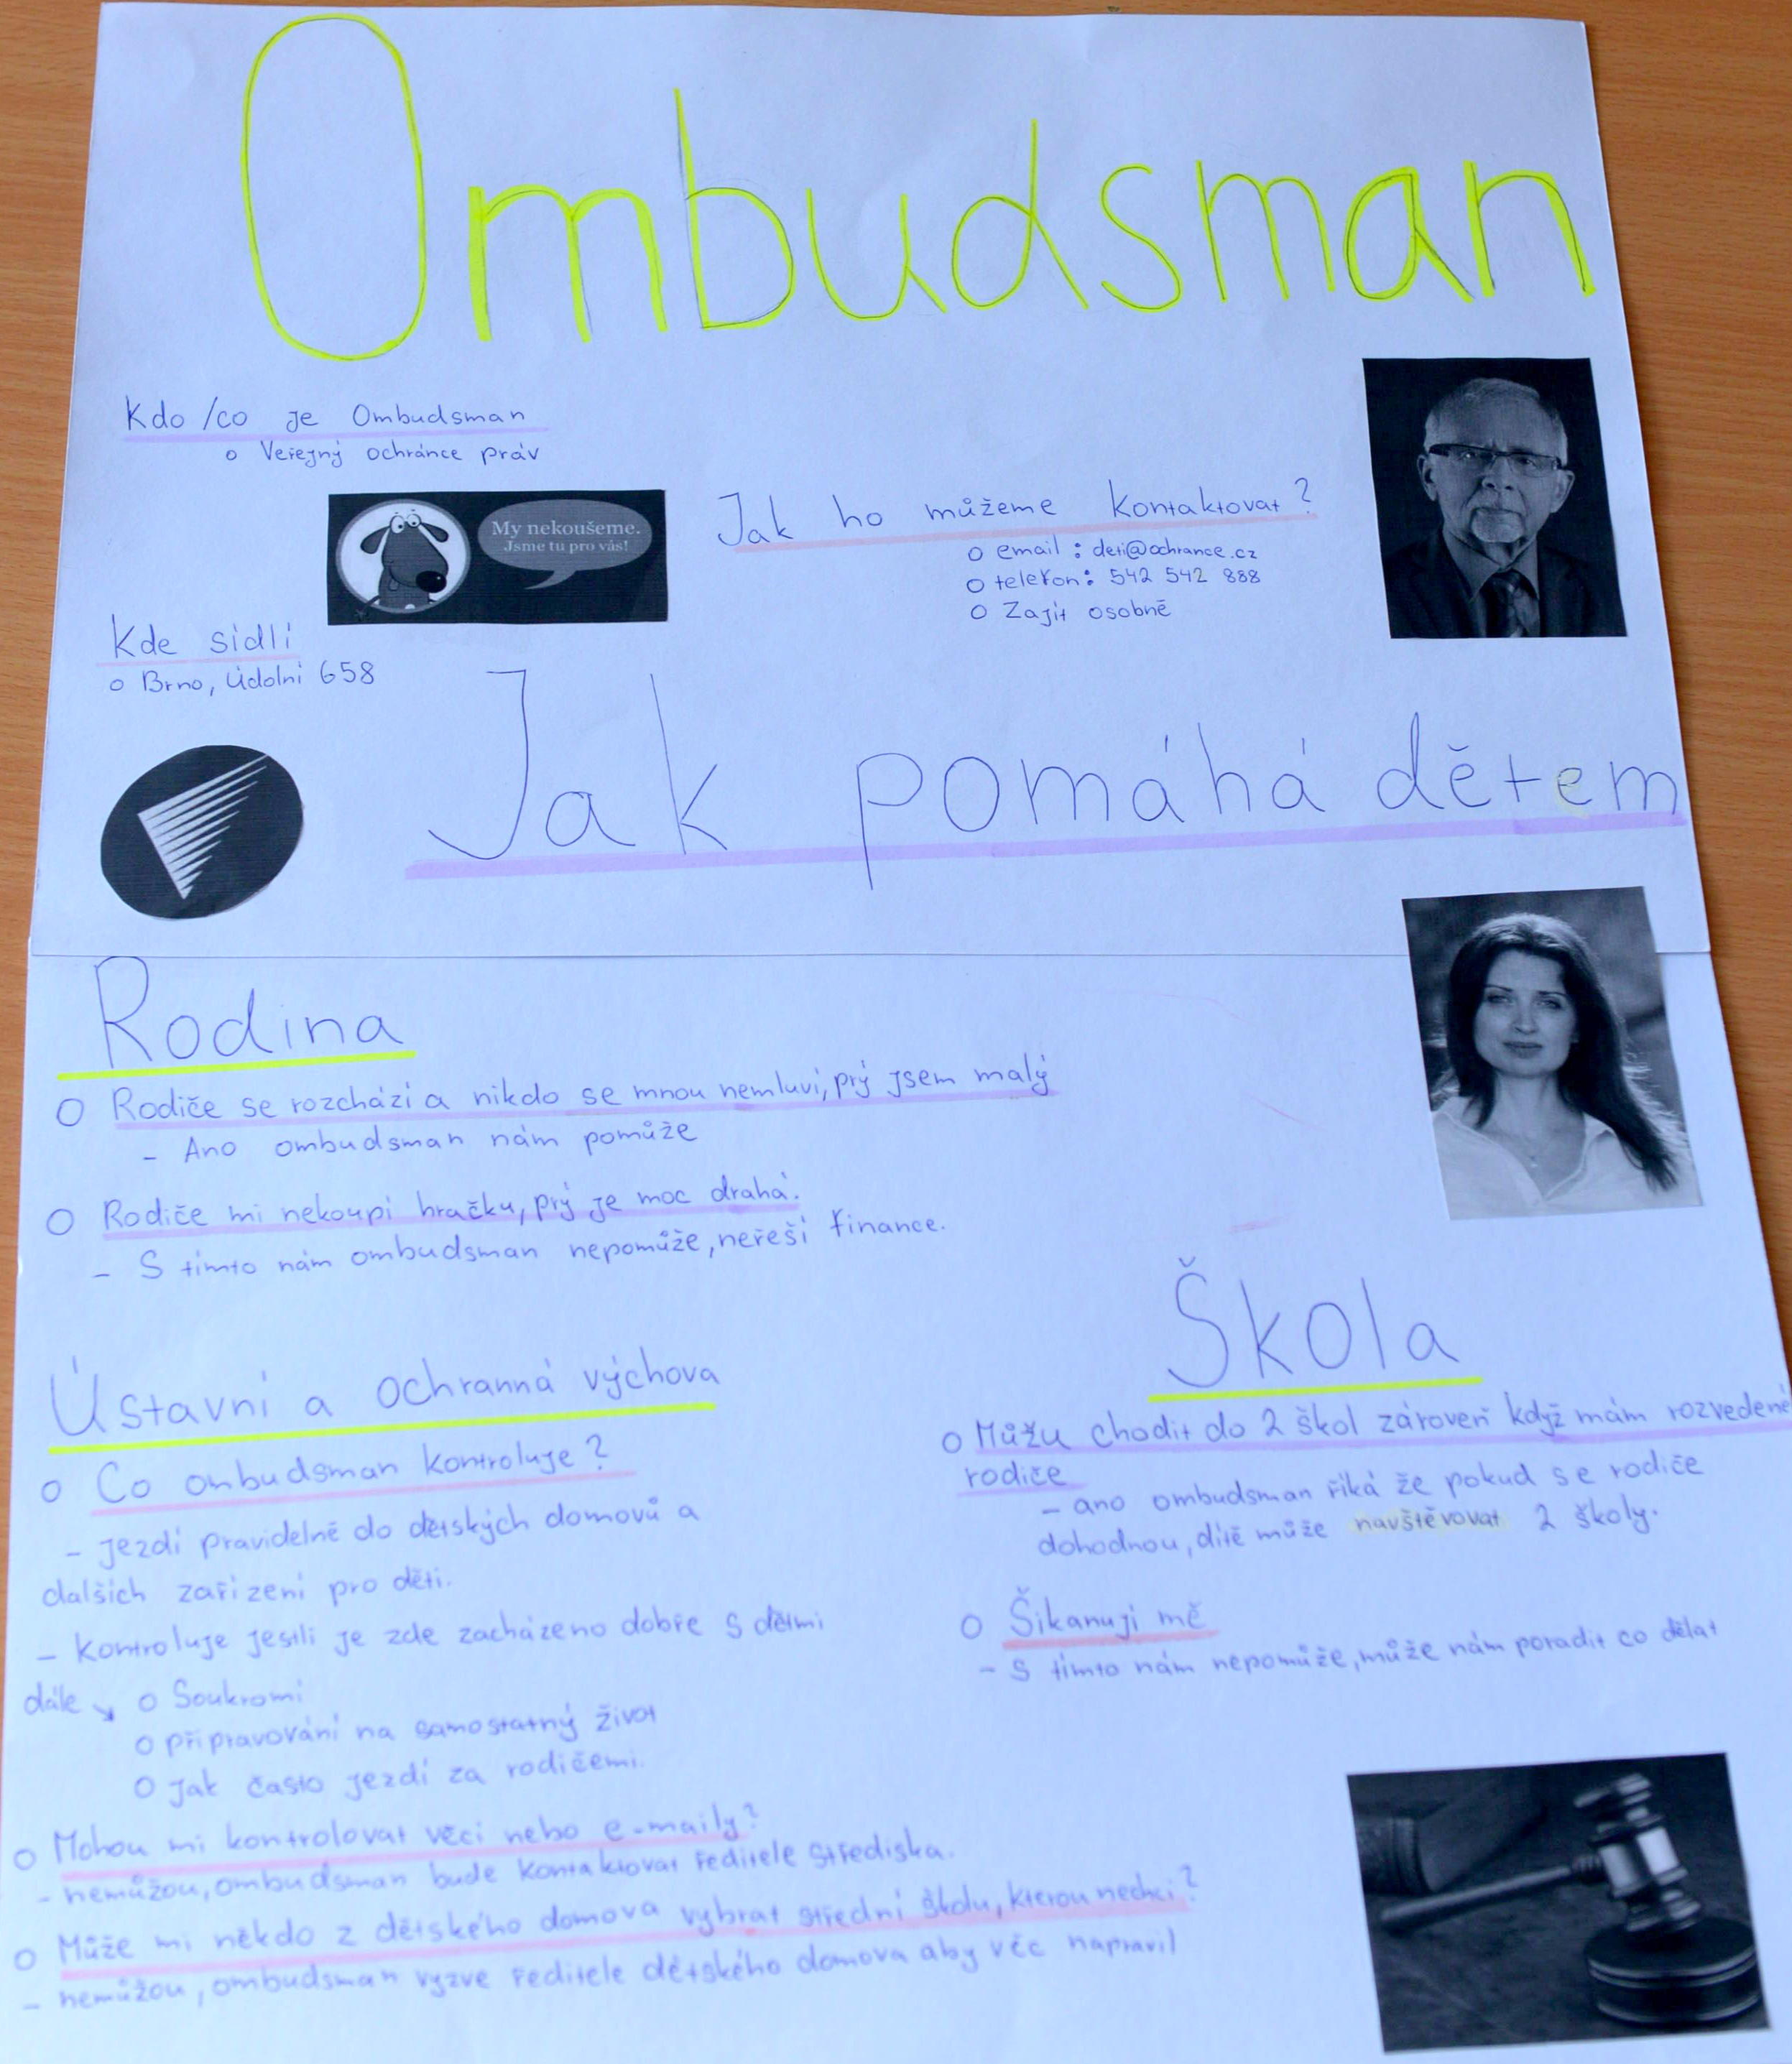 Ombudsman
Kdo/co je Ombudsman
o Veřejný ochránce práv
My nekoušeme.
Jsme tu pro vás!
Jak ho můžeme kontaktovat?
o email: deti@ochrance.cz
o telefon: 542 542 888
o Zajít osobně
Kde sídlí
o Brno, Údolní 658
Jak pomáhá dětem
Rodina
o Rodiče se rozchází a nikdo se mnou nemluví, prý jsem malý
- Ano ombudsman nám pomůže
o Rodiče mi nekoupí hračku, prý je moc drahá.
- S tímto nám ombudsman nepomůže, neřeší finance.
Ústavní a ochranná výchova
o Co ombudsman kontroluje?
- jezdí pravidelně do dětských domovů a
dalších zařízení pro děti.
- kontroluje jestli je zde zacházeno dobře s dětmi
dále ↘ o Soukromí
o připravování na samostatný život
o jak často jezdí za rodičemi.
o Mohou mi kontrolovat věci nebo e-maily?
- nemůžou, ombudsman bude kontaktovat ředitele střediska.
o Může mi někdo z dětského domova vybrat střední školu, kterou nechci?
- nemůžou, ombudsman vyzve ředitele dětského domova aby věc napravil
Škola
o Můžu chodit do 2 škol zároveň když mám rozvedené
rodiče
- ano ombudsman říká že pokud se rodiče
dohodnou, dítě může navštěvovat 2 školy.
o Šikanují mě
- s tímto nám nepomůže, může nám poradit co dělat